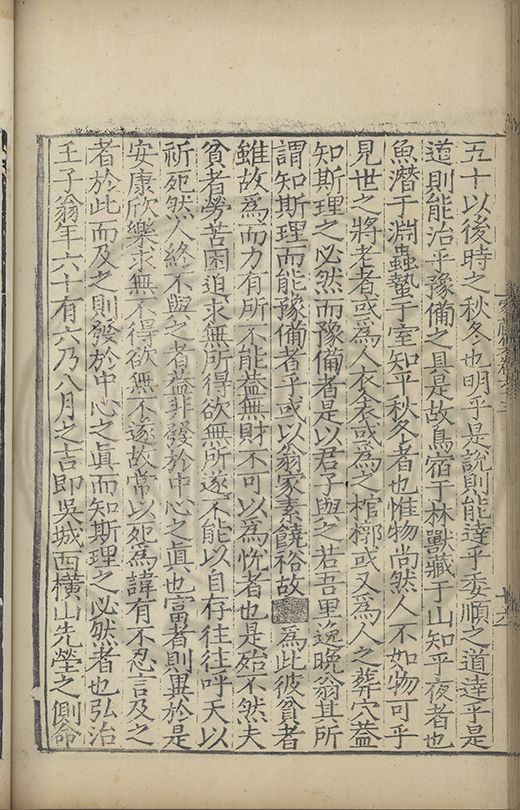 五十以後時之秋冬也明乎是說則能達乎委順之道達乎是
道則能治乎豫備之具是故鳥宿于林獸藏于山知乎夜者也
魚潛于淵蟲蟄于室知乎秋冬者也惟物尚然人不如物可乎
見世之將老者或為人衣衾或為之棺槨或又為人之葬穴蓋
知斯理之必然而豫備者是以君子與之若吾里逸晚翁其所
謂知斯理而能豫備者乎或以翁家素饒裕故為此彼貧者
雖故為而力有所不能益無財不可以為恱者也是殆不然夫
貧者勞苦困迫求無所得欲無所遂不能以自存往往呼天以
祈死然人終不與之者蓋非發於中心之真也富者則異於是
安康欣樂求無不得欲無不遂故常以死為諱有不忍言及之
者於此而及之則發於中心之真而知斯理之必然者也弘治
壬子翁年六十有六乃八月之吉即吳城西橫山先塋之側命